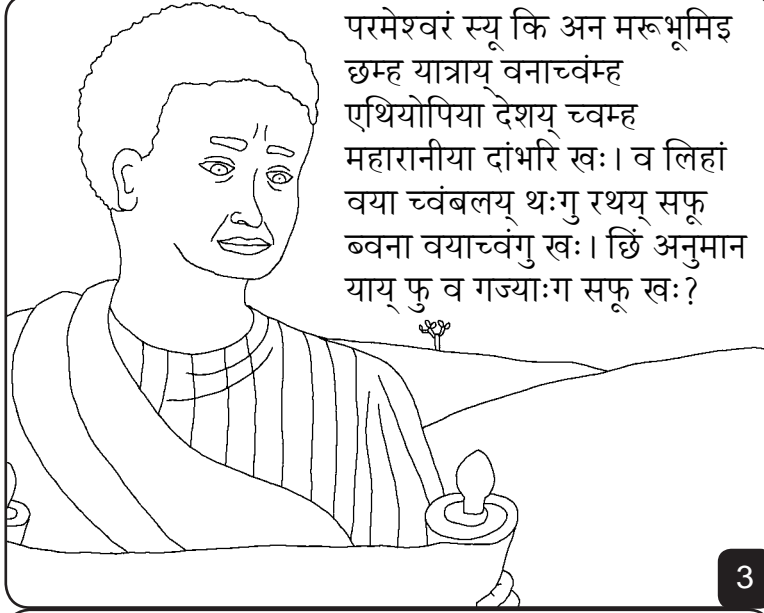 परमेश्वरं स्यू कि अन मरूभूमिइ
छम्ह यात्राय् वनाच्वंम्ह
एथियोपिया देशय् च्वम्ह
महारानीया दांभरि खः। व लिहां
वया च्वंबलय् थःगु रथय् सफू
ब्वना वयाच्वंगु खः। छिं अनुमान
याय् फु व गज्याःग सफू खः?
3